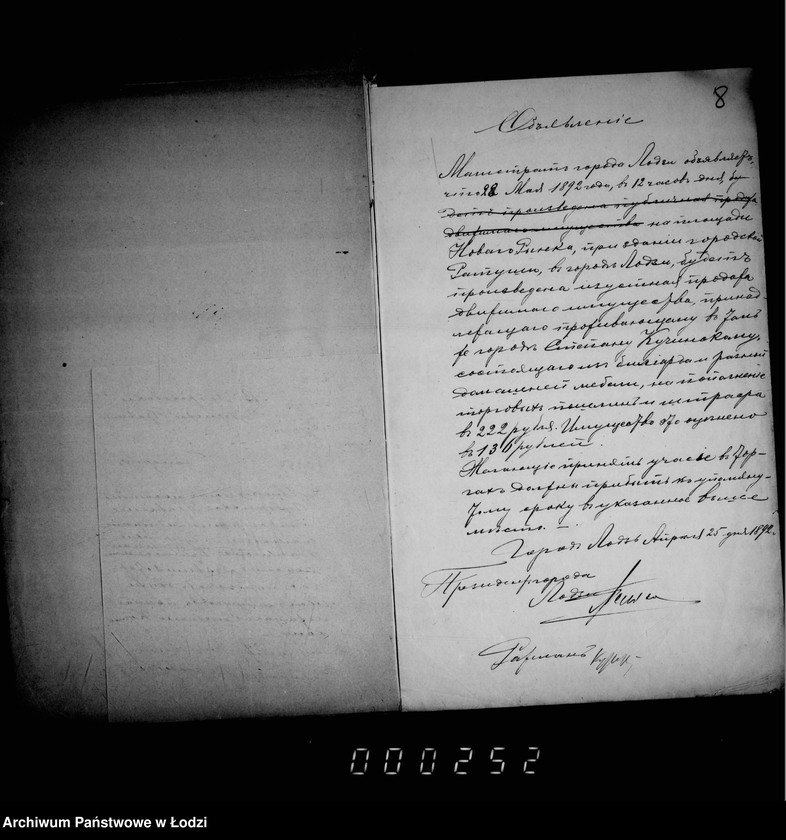 8
Объявленіе
Магистратъ города Лодзи объявляетъ,
что 28 Мая 1892 года, в 12 часовъ дня, бу-
детъ произведена публичная продажа
движимаго имущества на площади
Новаго Рынка, при зданіи городской
Ратуши, въ городѣ Лодзи, будетъ
произведена изустная продажа
движимаго имущества, принад-
лежащаго проживающему въ здѣш-
городѣ Степану Кучинскому,
состоящаго изъ билліарда и разной
домашней мебели, на пополненіе
торговыхъ пошлинъ и штрафа
въ 222 рубля. Имущество это оценено
въ 136 рублей.
Желающіе принять участіе въ тор-
гахъ должны прибыть къ упомяну-
тому сроку въ указанное выше
мѣсто.
Городъ Лодзь Апрѣля 25 дня 1892
Президентъ города
Лодзи
000252
Archiwum Państwowe w Łodzi